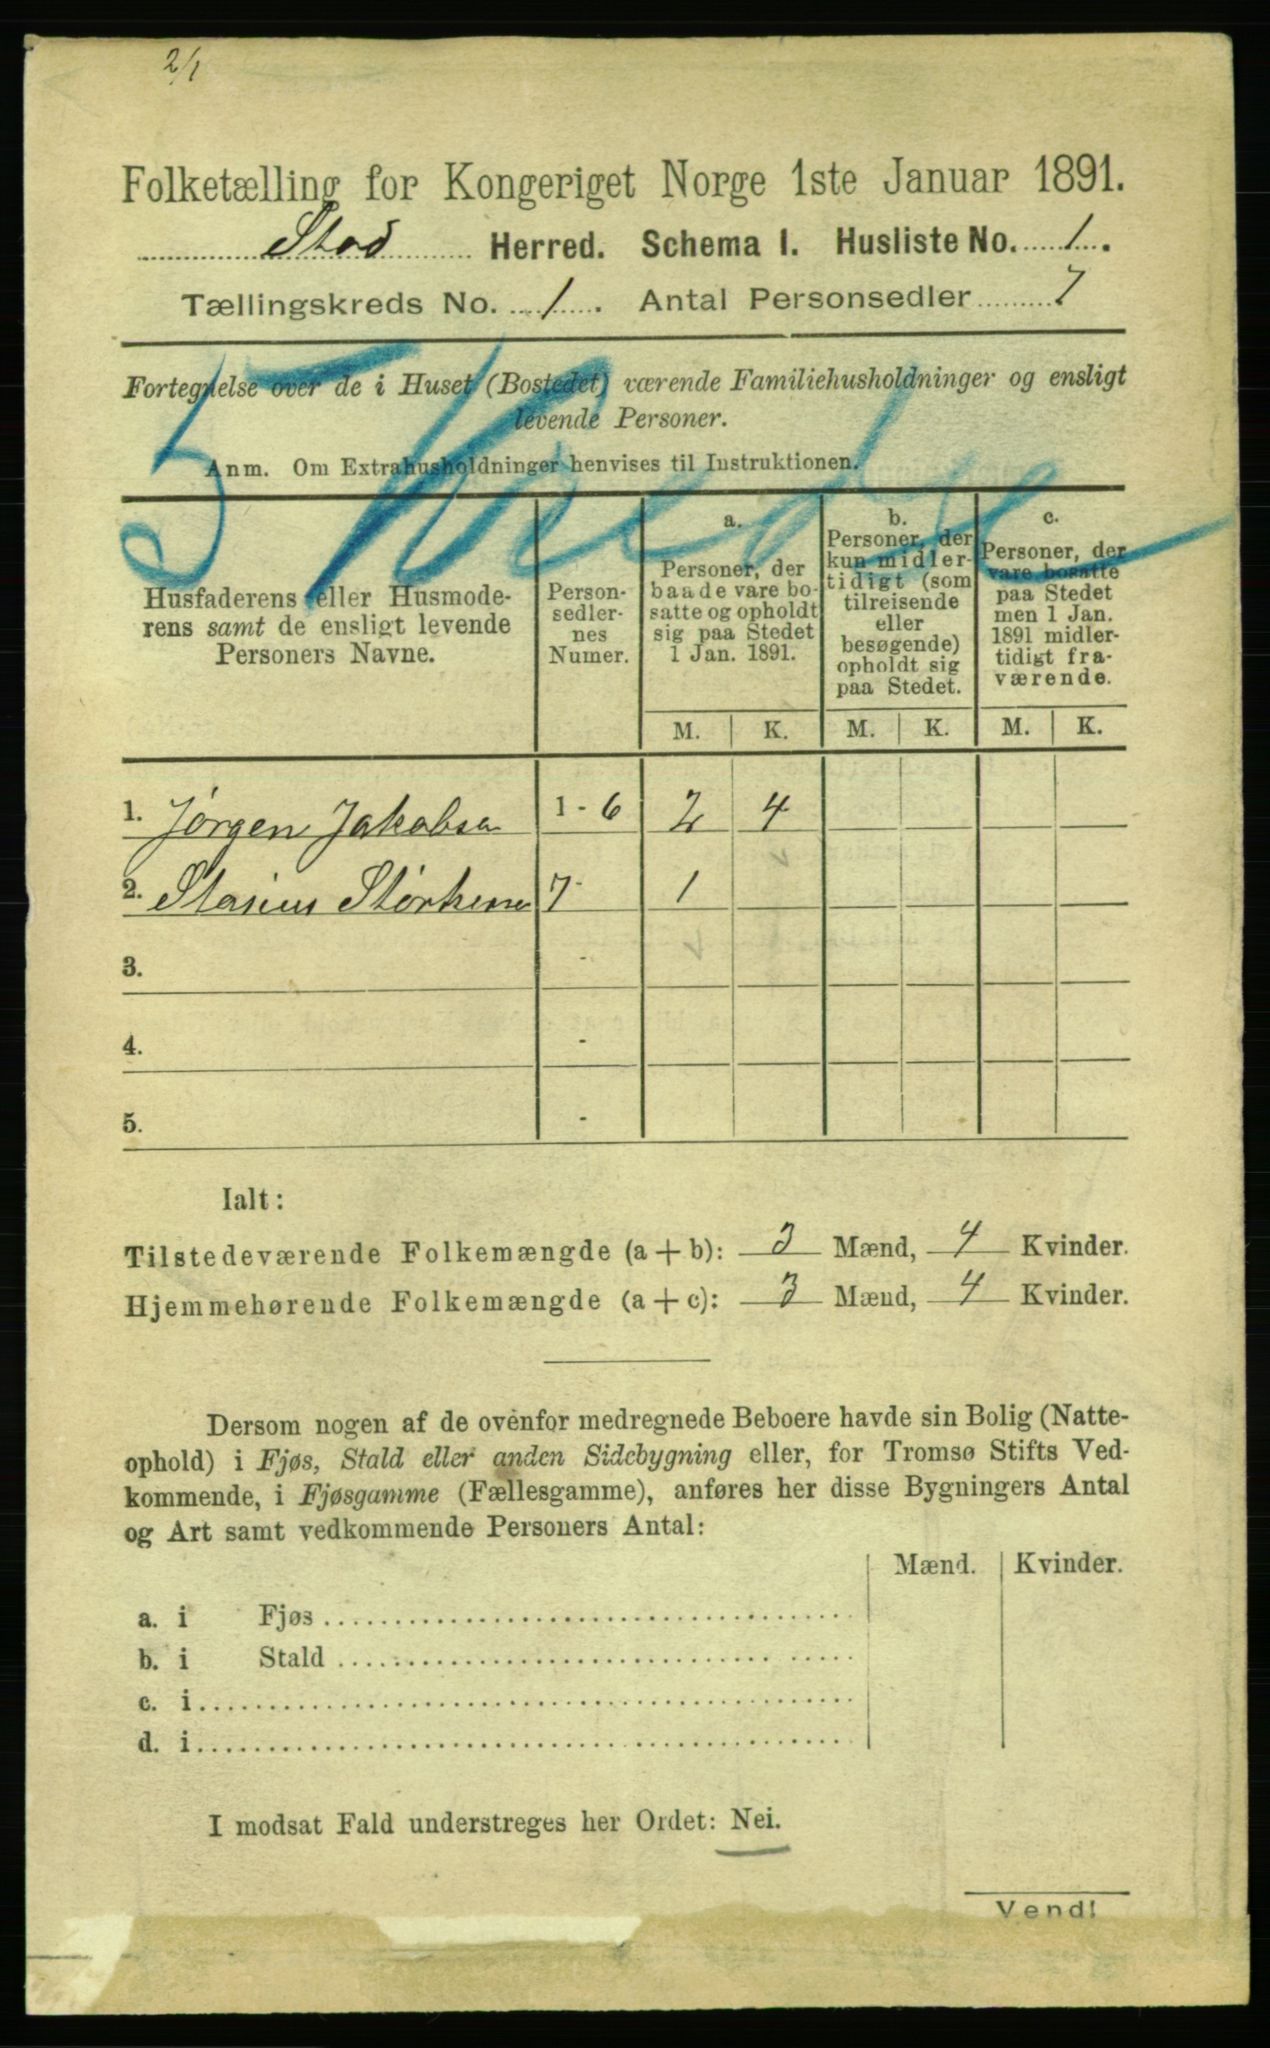 2/1
Folketælling for Kongeriget Norge 1ste Januar 1891.
Stod Herred. Schema I. Husliste No. 1.
Tællingskreds No. 1. Antal Personsedler 7
Fortegnelse over de i Huset (Bostedet) værende Familiehusholdninger og ensligt
levende Personer.
Anm. Om Extrahusholdninger henvises til Instruktionen.
Husfaderens eller Husmode-
rens samt de ensligt levende
Personers Navne.
Person-
sedler-
nes
Numer.
a.
Personer, der
baade vare bo-
satte og opholdt
sig paa Stedet
1 Jan. 1891.
b.
Personer, der
kun midler-
tidigt (som
tilreisende
eller
besøgende)
opholdt sig
paa Stedet.
c.
Personer, der
vare bosatte
paa Stedet
men 1 Jan.
1891 midler-
tidigt fra-
værende.
M. K. M. K. M. K.
1. Jørgen Jakobsen 1 - 6 2 4
2. Stasius Størkersen 7 - 1
3. -
4. -
5. -
Ialt:
Tilstedeværende Folkemængde (a + b): 3 Mænd, 4 Kvinder.
Hjemmehørende Folkemængde (a + c): 3 Mænd, 4 Kvinder.
Dersom nogen af de ovenfor medregnede Beboere havde sin Bolig (Natte-
ophold) i Fjøs, Stald eller anden Sidebygning eller, for Tromsø Stifts Ved-
kommende, i Fjøsgamme (Fællesgamme), anføres her disse Bygningers Antal
og Art samt vedkommende Personers Antal:
Mænd. Kvinder.
a. i Fjøs
b. i Stald
c. i
d. i
I modsat Fald understreges her Ordet: Nei.
Vend!